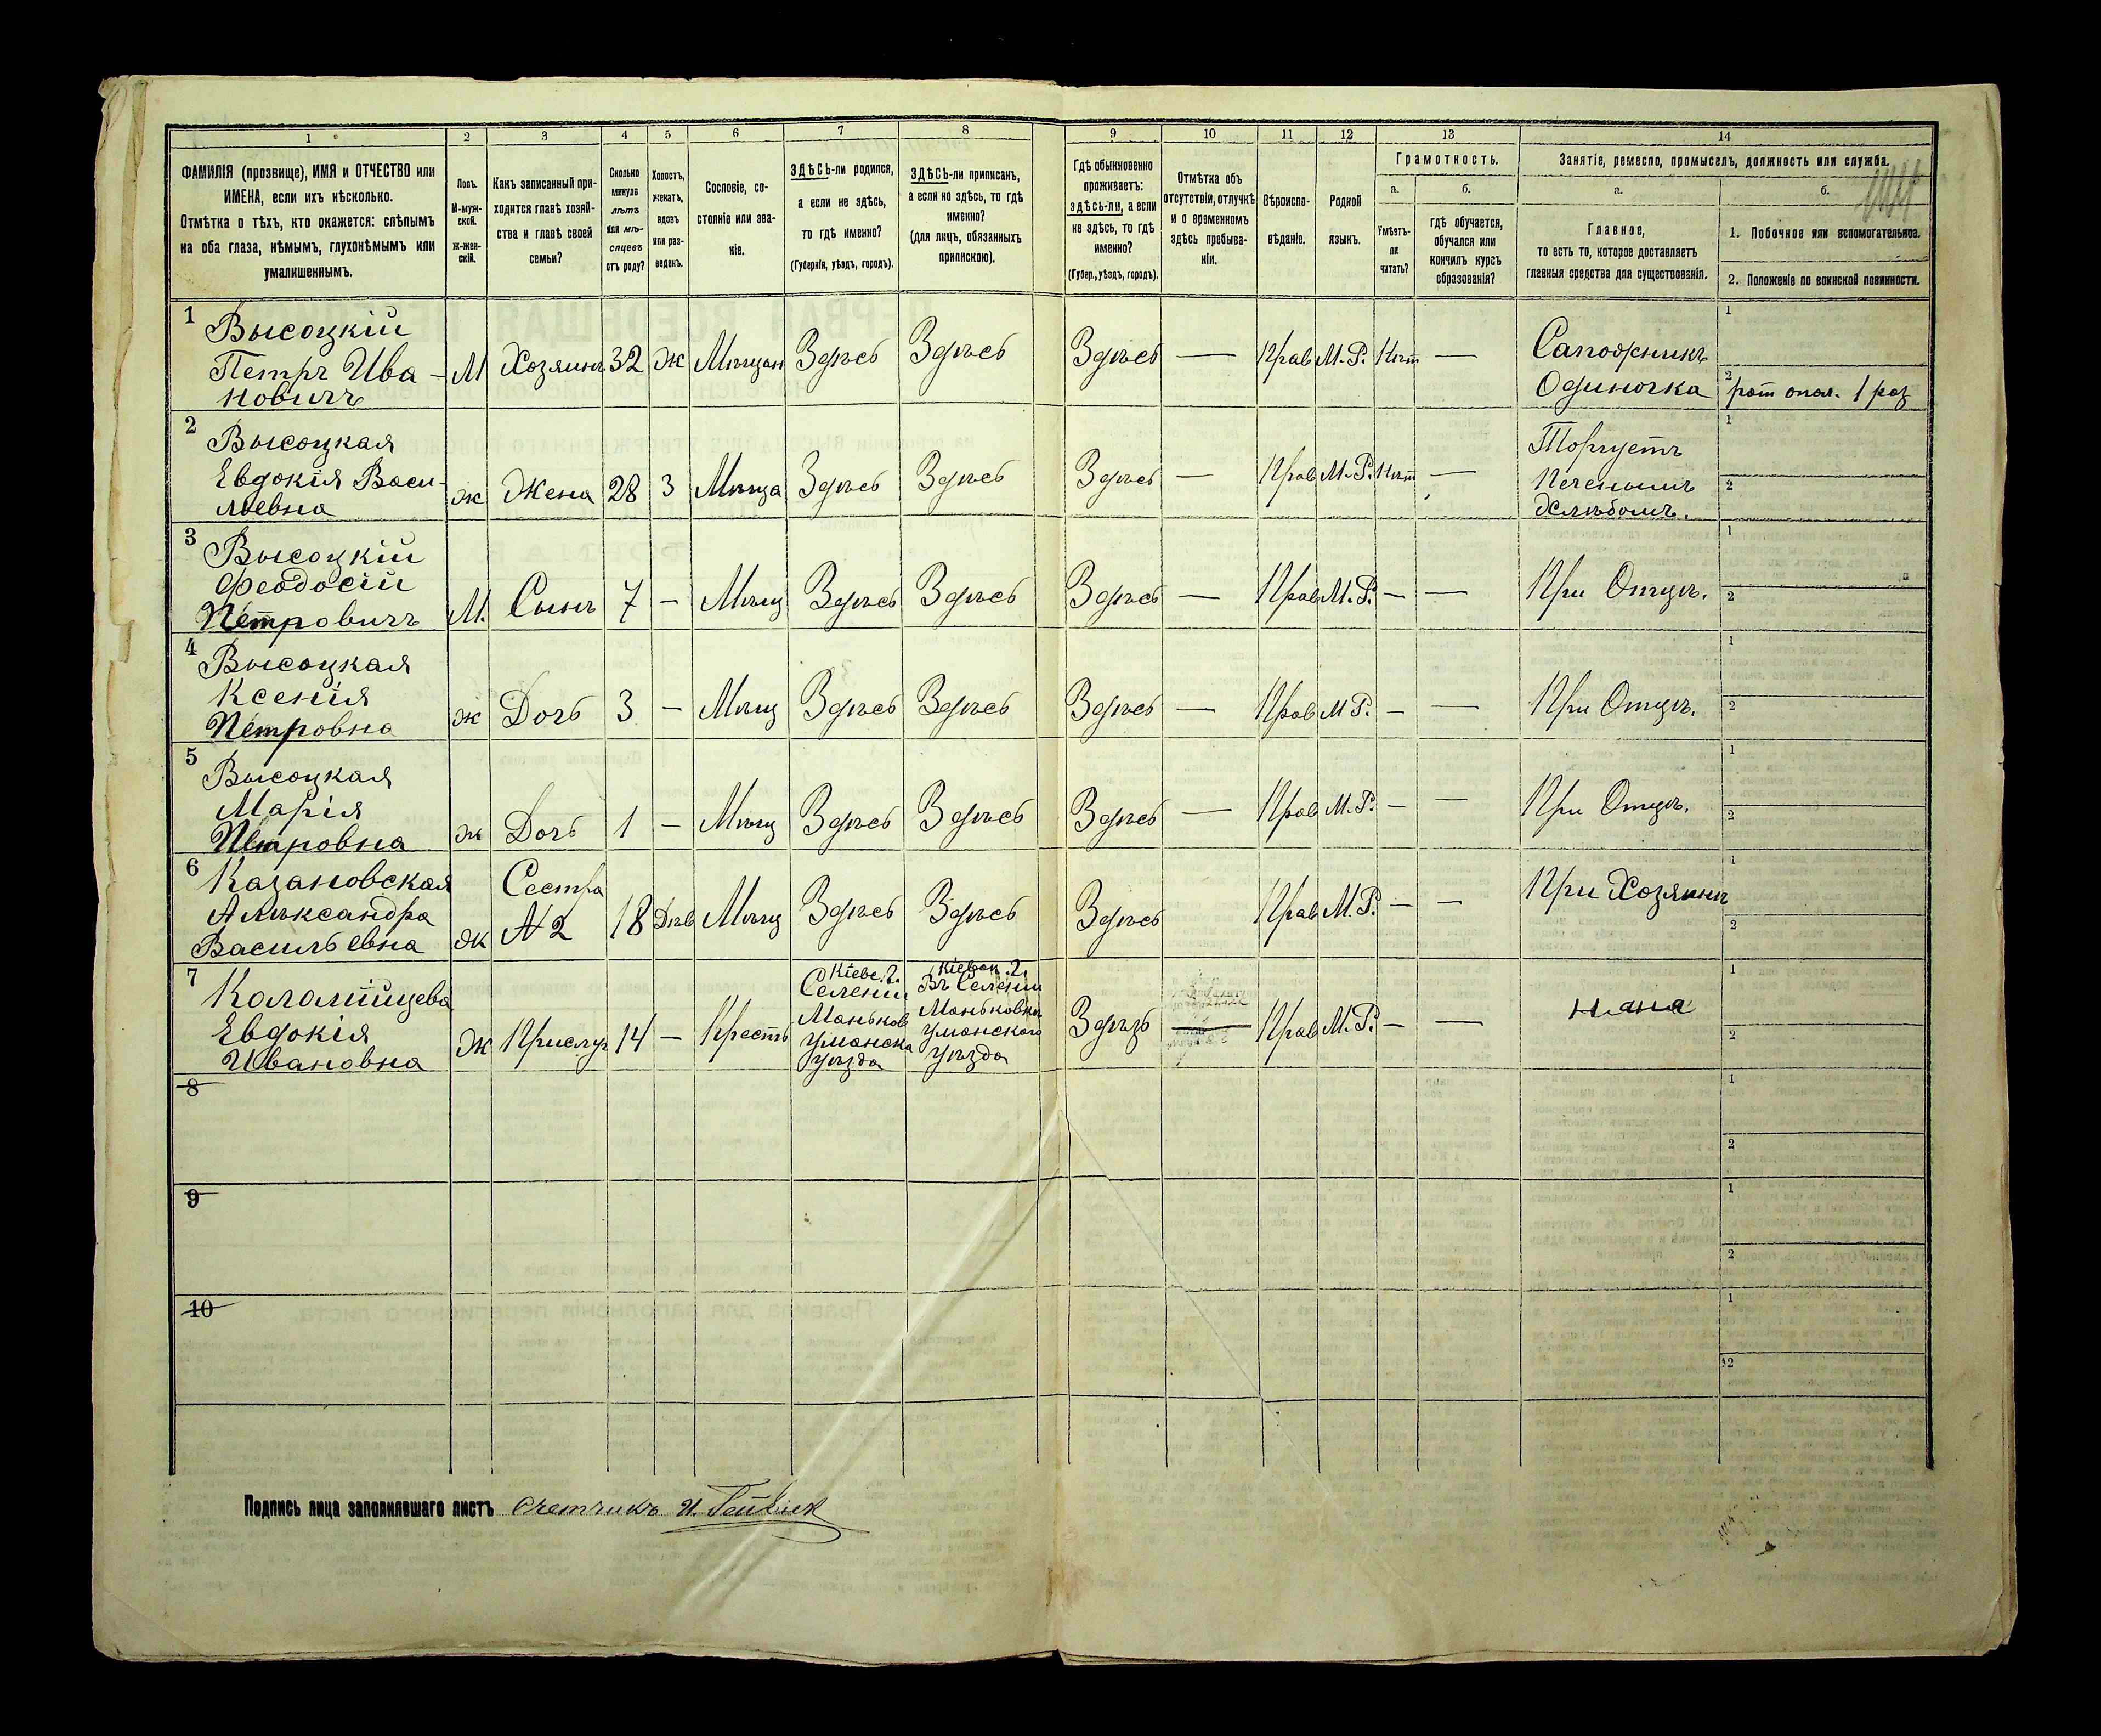 1 2 3 4 5 6 7 8 9 10 11 12 13 14
ФАМИЛІЯ (прозвище), ИМЯ и ОТЧЕСТВО или
ИМЕНА, если ихъ нѣсколько.
Отмѣтка о тѣхъ, кто окажется: слѣпымъ
на оба глаза, нѣмымъ, глухонѣмымъ или
умалишеннымъ.
Полъ.
М-муж-
ской.
Ж-жен-
скій.
Какъ записанный при-
ходится главѣ хозяй-
ства и главѣ своей
семьи?
Сколько
минуло
лѣтъ
или мѣ-
сяцевъ
отъ роду?
Холостъ,
женатъ,
вдовъ
или раз-
веденъ.
Сословіе, со-
стояніе или зва-
ніе.
ЗДѢСЬ-ли родился,
а если не здѣсь,
то гдѣ именно?
(Губернія, уѣздъ, городъ).
ЗДѢСЬ-ли приписанъ,
а если не здѣсь, то гдѣ
именно?
(для лицъ, обязанныхъ
припискою).
Гдѣ обыкновенно
проживаетъ:
здѣсь-ли, а если
не здѣсь, то гдѣ
именно?
(Губер., уѣздъ, городъ).
Отмѣтка объ
отсутствіи, отлучкѣ
и о временномъ
здѣсь пребыва-
ніи.
Вѣроиспо-
вѣданіе.
Родной
языкъ.
Грамотность.
а.
Умѣетъ-
ли
читать?
б.
гдѣ обучается,
обучался или
кончилъ курсъ
образованія?
Занятіе, ремесло, промыселъ, должность или служба.
а.
Главное,
то есть то, которое доставляетъ
главныя средства для существованія.
б.
1. Побочное или вспомогательное.
2. Положеніе по воинской повинности.
1 Высоцкій
Петръ Ива-
новичъ
М Хозяинъ 32 Ж Мѣщан Здѣсь Здѣсь Здѣсь — Прав М.Р. Нѣт —
Сапожникъ
Одиночка
1
2 рат опол. 1 раз
2 Высоцкая
Евдокія Васи-
льевна
ж Жена 28 З Мѣща Здѣсь Здѣсь Здѣсь — Прав М.Р. Нѣт —
Торгуетъ
Печенымъ
Хлѣбомъ.
1
2
3 Высоцкій
Феодосій
Петровичъ
М. Сынъ 7 — Мѣщ Здѣсь Здѣсь Здѣсь — Прав М.Р. — — При Отцѣ.
1
2
4 Высоцкая
Ксенія
Петровна
ж Дочь 3 — Мѣщ Здѣсь Здѣсь Здѣсь — Прав М.Р. — — При Отцѣ.
1
2
5 Высоцкая
Марія
Петровна
ж Дочь 1 — Мѣщ Здѣсь Здѣсь Здѣсь — Прав М.Р. — — При Отцѣ.
1
2
6 Казановская
Алѣксандра
Васильевна
ж Сестра
№2
18 Дѣв Мѣщ Здѣсь Здѣсь Здѣсь Прав М.Р. — — При Хозяинѣ
1
2
7
Евдокія
Ивановна
Ж Прислуг 14 — Крестъ
Кіевс. г.
Селеніи
Маньков
Уманска
уѣзда
Кіевск. г.
Въ Селеніи
Маньковки
Уманскаго
уѣзда
Здѣзь — Прав М.Р. — — няня
1
2
8
1
2
9
1
2
10
1
2
Подпись лица заполнявшаго листъ Счетчикъ И.